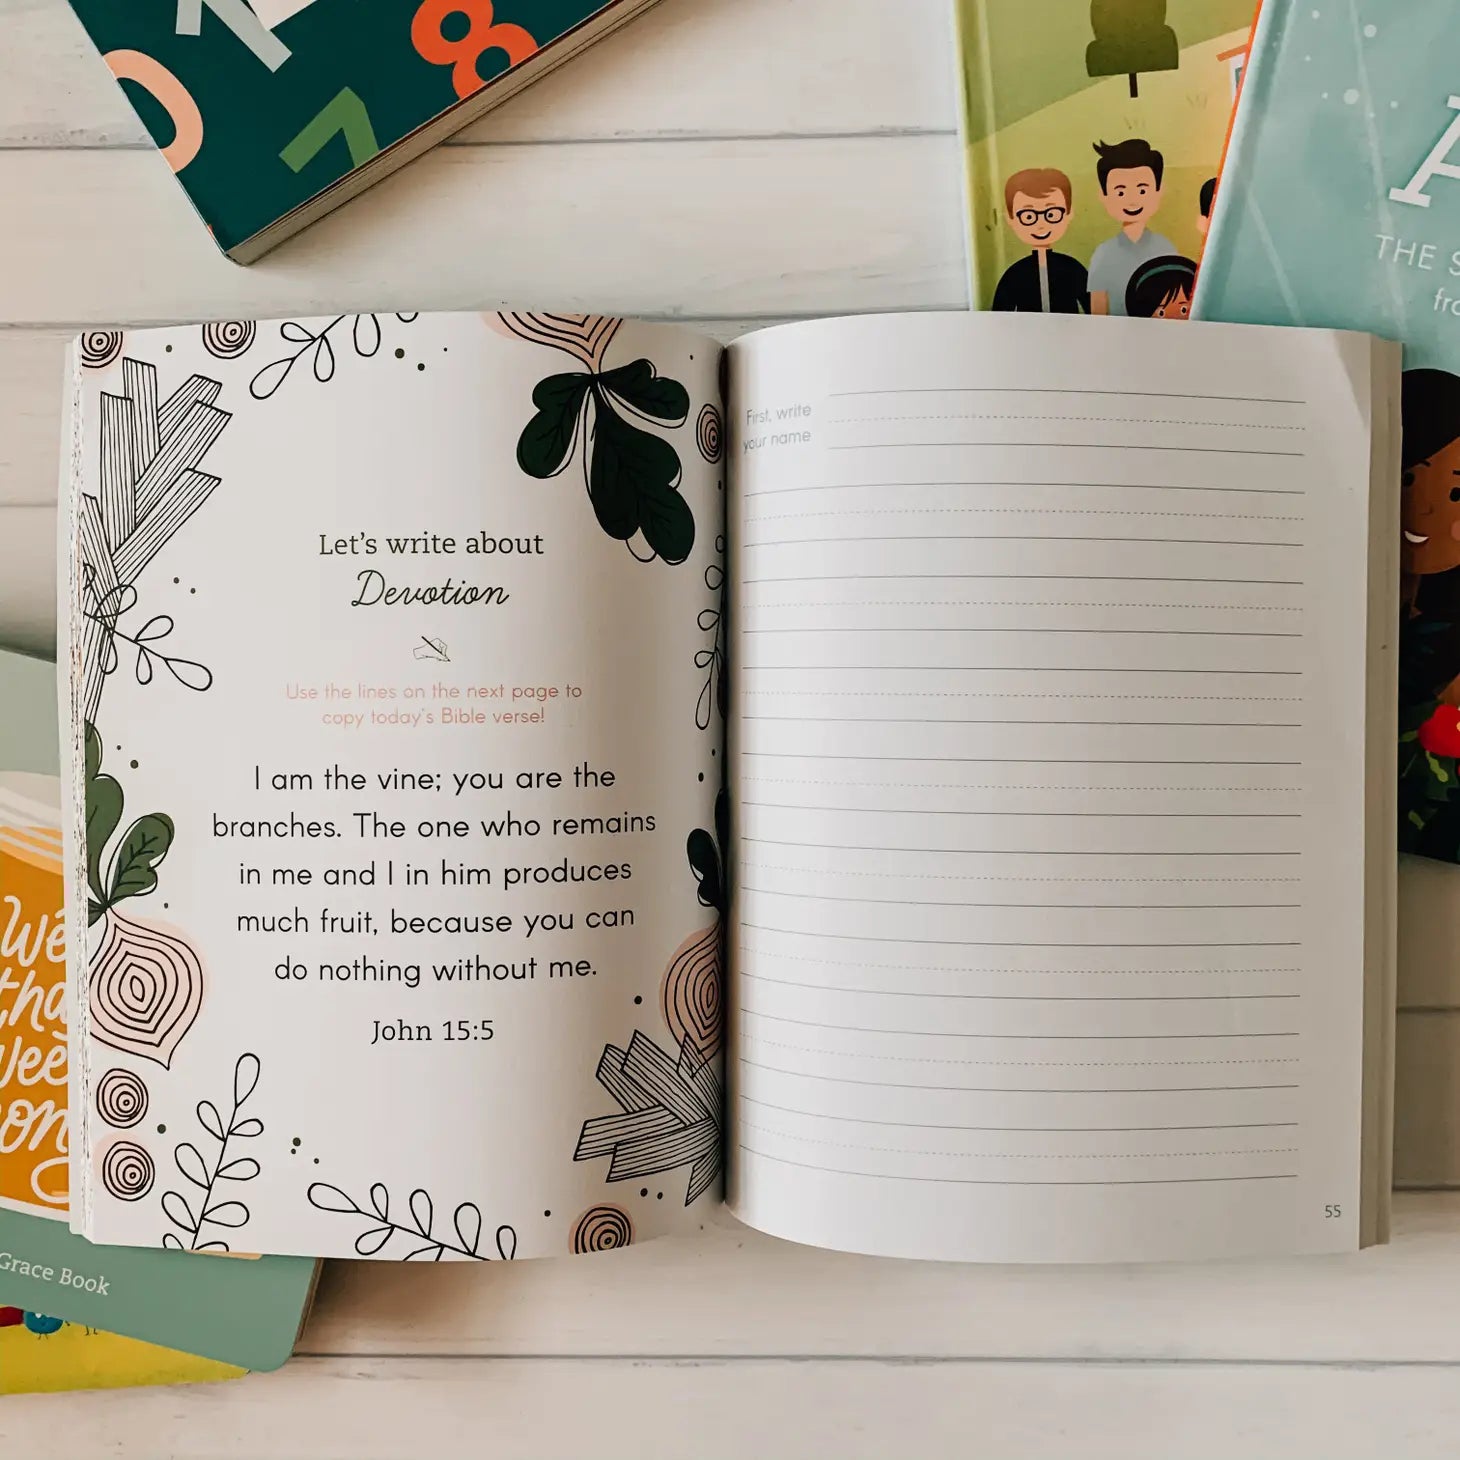 0 1
8
7
A
THE S
fro
Let's write about
Devotion
Use the lines on the next page to
copy today's Bible verse!
I am the vine; you are the
branches. The one who remains
in me and I in him produces
much fruit, because you can
do nothing without me.
John 15:5
First, write
your name
55
We
tha
Wee
on
Grace Book